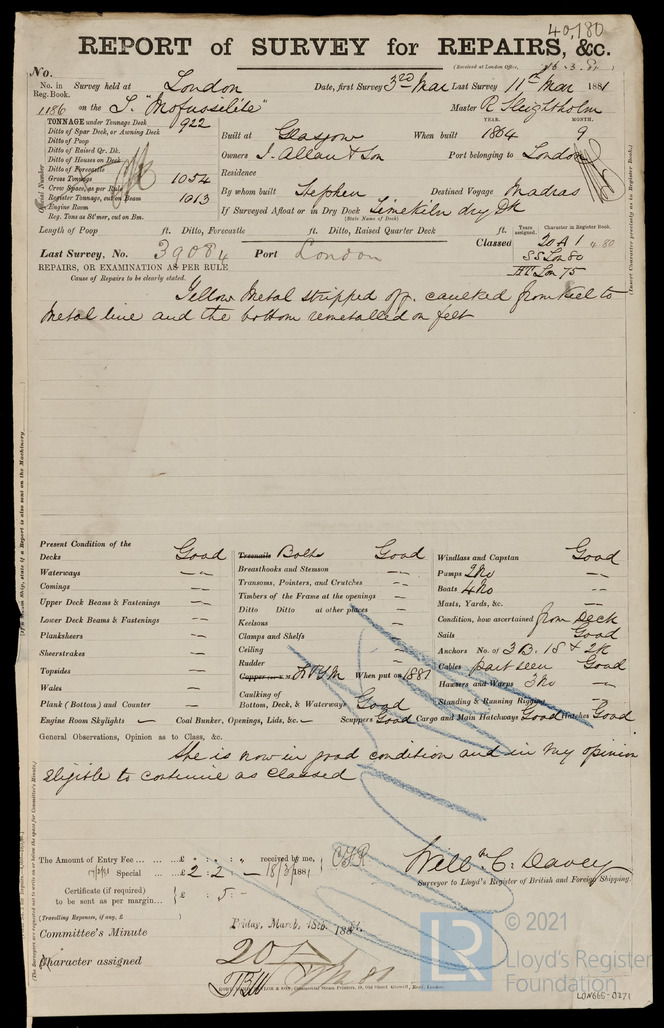 40,180
REPORT of SURVEY for REPAIRS, &c.
(Received at London Office,
No.
No. in Reg. Book. Survey held at London Date, first Survey 3rd Mar Last Survey 11th Mar 1881
1186 on the S. "Mofussilite" Master R Sleightholm
TONNAGE under Tonnage Deck 922
YEAR. MONTH.
Ditto of Spar Deck, or Awning Deck
Built at Glasgow When built 1864 9
Ditto of Poop
Ditto of Raised Qr. Dk.
Owners J. Allan & Son Port belonging to London
Ditto of Houses on Deck
Ditto of Forecastle
Residence
Gross Tonnage 1054
Crew Space, as per Rule
By whom built Stephen Destined Voyage Madras
Register Tonnage, cut on Beam 1013
Engine Room
If Surveyed Afloat or in Dry Dock Limekiln dry Dk
(State Name of Dock)
Reg. Tons as St'mer, cut on Bm.
Official Number
Length of Poop ft. Ditto, Forecastle ft. Ditto, Raised Quarter Deck ft.
Years assigned. Character in Register Book.
Classed 20 A 1 4.80
SS Lon 80
HT Lon 75
Last Survey, No. 39084 Port London
REPAIRS, OR EXAMINATION AS PER RULE
Cause of Repairs to be clearly stated.
Yellow Metal stripped off. caulked from Keel to
Metal line and the bottom remetalled on felt
Present Condition of the
Decks Good
Waterways
Comings
Upper Deck Beams & Fastenings
Lower Deck Beams & Fastenings
Planksheers
Sheerstrakes
Topsides
Wales
Plank (Bottom) and Counter
Treenails Bolts Good
Breasthooks and Stemson
Transoms, Pointers, and Crutches
Timbers of the Frame at the openings
Ditto Ditto at other places
Keelsons
Clamps and Shelfs
Ceiling
Rudder
Copper F & YM When put on 1881
Caulking of
Bottom, Deck, & Waterways Good
Windlass and Capstan Good
Pumps 2 No
Boats 4 No
Masts, Yards, &c.
Condition, how ascertained from Deck
Sails Good
Anchors No. of 3 B. 1S & 2K
Cables part seen Good
Hawsers and Warps 3 No
Standing & Running Rigging
Engine Room Skylights — Coal Bunker, Openings, Lids, &c. — Scuppers Good Cargo and Main Hatchways Good Hatches Good
General Observations, Opinion as to Class, &c.
She is now in good condition and in my opinion
eligible to continue as classed
The Amount of Entry Fee ... £ : : received by me,
Special ... £2 : 2 : – 18/3/1881
Certificate (if required)
to be sent as per margin... £ : 5 : –
(Travelling Expenses, if any, £ )
Willm C. Davey
Surveyor to Lloyd's Register of British and Foreign Shipping.
Committee's Minute Friday, March, 18th. 1881.
Character assigned 20
© 2021
LR
Lloyd's Register
Foundation
LON666-0271